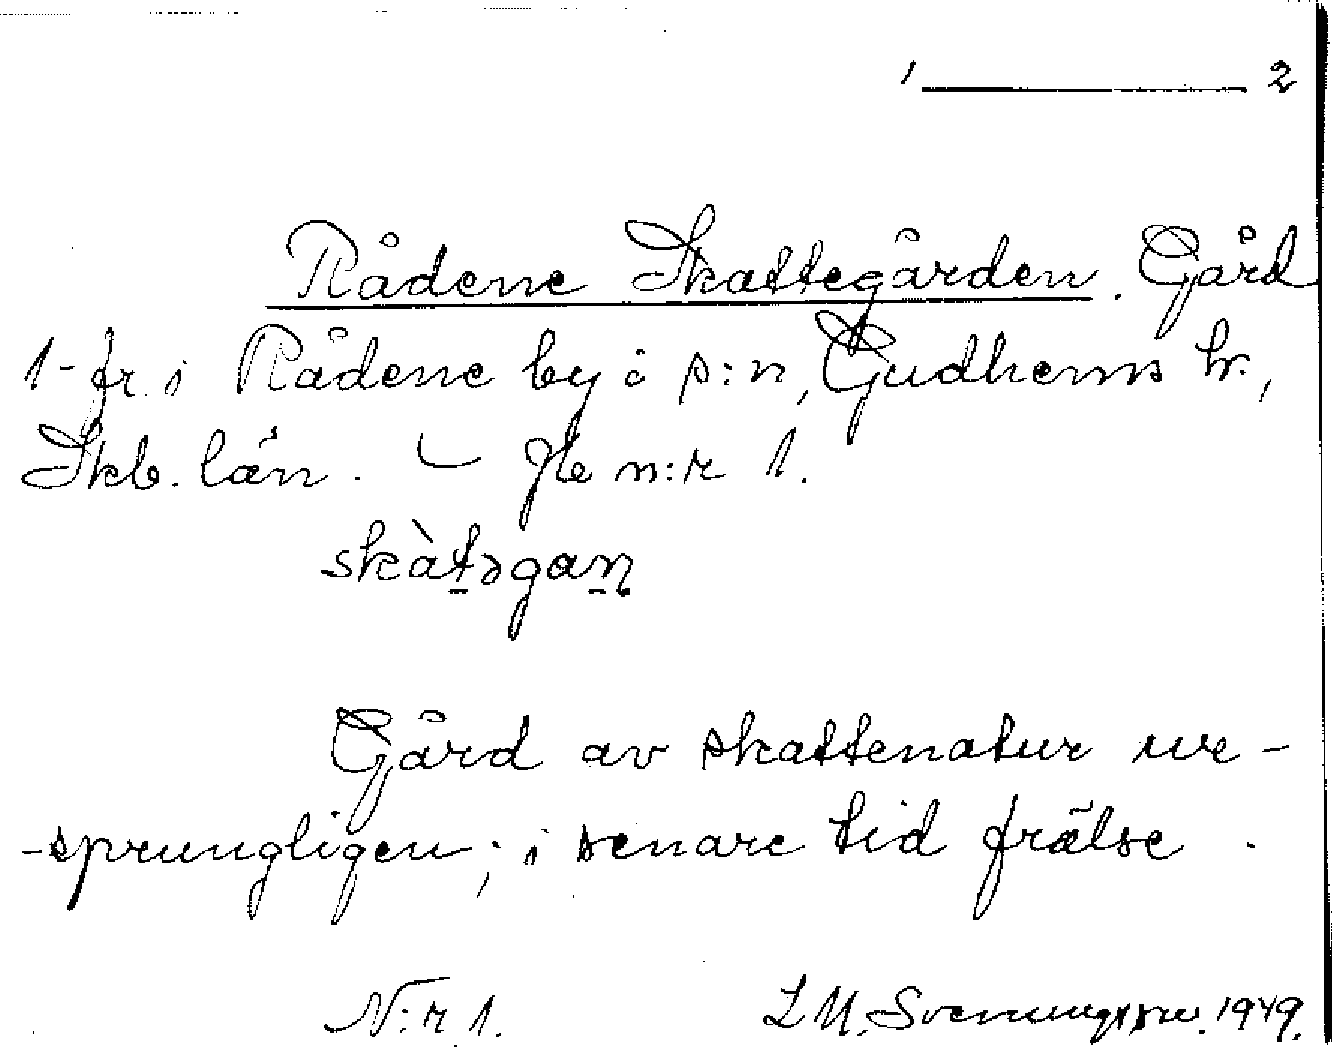 1 ———— 2
Rådene Skattegården. Gård
1-fr. i Rådene by i s:n, Gudhems hr.,
Skb. län. — Je n:r 1.
skàtəgaṉ
Gård av skattenatur ur-
-sprungligen; i senare tid frälse.
N:r 1. L M. Svenungsson. 1949.